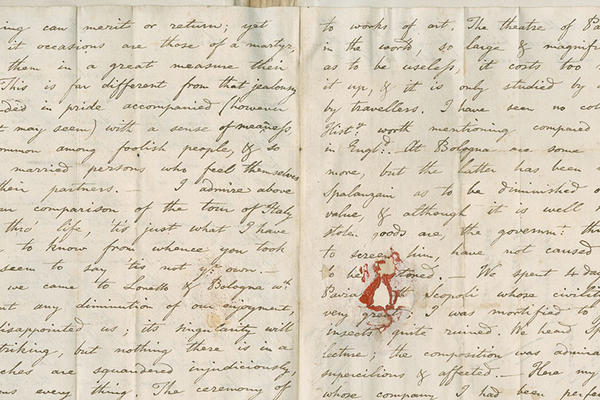 ing can merit or return; yet
it occasions are those of a martyr,
them in a great measure their
This is far different from that jealousy
ded in pride accompanied (however
t may seem) with a sense of meaness,
ommon among foolish people, & so
married persons who feel themselves
their partners. — I admire above
comparison of the tour of Italy
thro life, tis just what I have
to know from whence you took
seem to say 'tis not yr. own. —
we came to Loretto & Bologna wth.
t any diminution of our enjoyment,
disappointed us its singularity will
triking, but nothing there is in a
ches are squandered injudiciously,
us every thing. The ceremony of
to works of art. The theatre of Pa
in the world, so large & magnifi
as to be useless, it costs too
it up, & it is only studied by
by travellers. I have seen no col
Histy. worth mentioning compared
in Engld. At Bologna are some
more, but the latter has been
Spalanzani as to be diminished
value, & although it is well
stolen goods are, the governmt. th
to screen him, have not caused
to be stored. — We spent 4 day
Pavia Scopoli whose civilit
very great; I was mortified to
insects quite ruined. We heard Sp
lecture; the composition was admira
supercilious & affected. — Here my
whose company I had been perfect